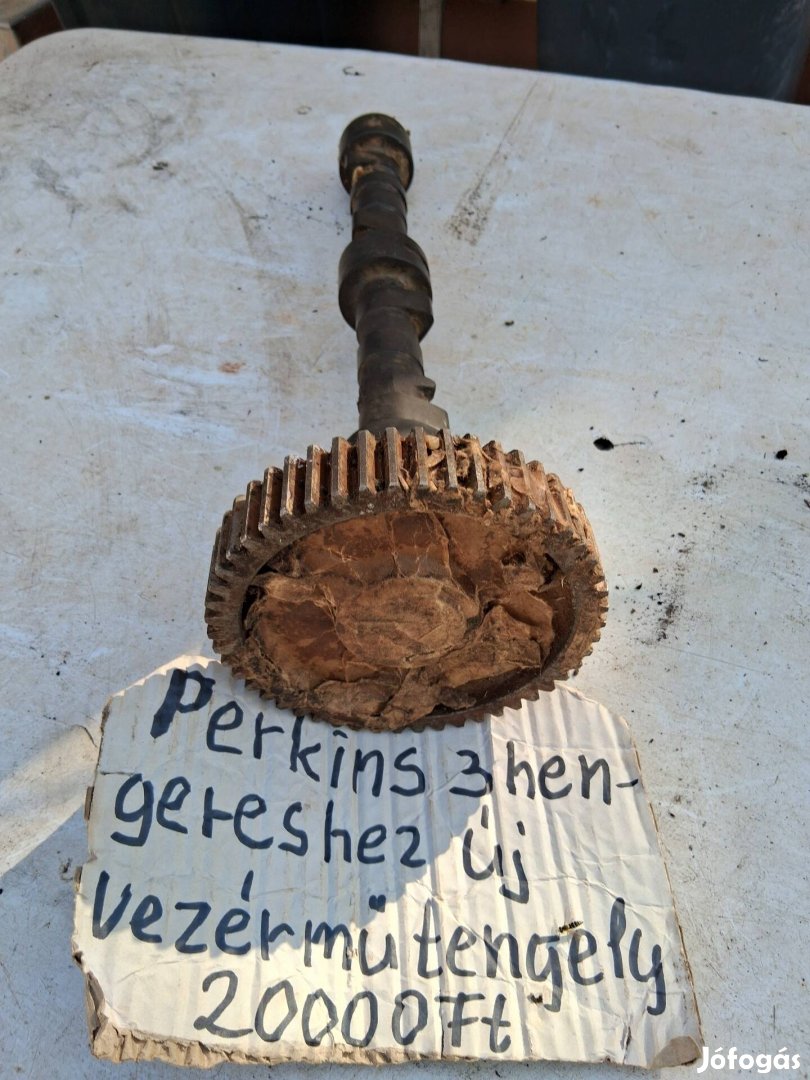 Perkins 3 hen-
gereshez új
vezérműtengely
20000 Ft
Jófogás